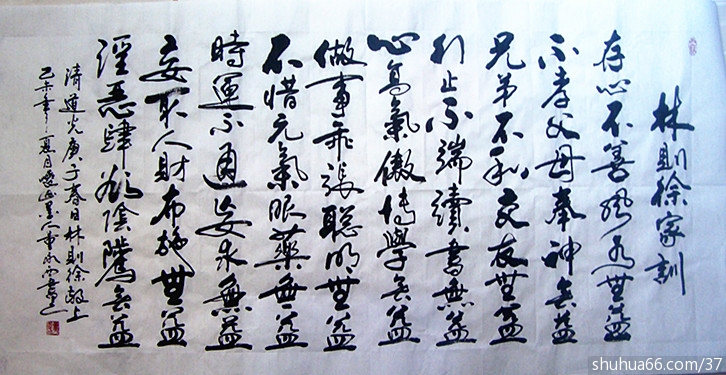 林則徐家訓
存心不善風水無益
不孝父母奉神無益
兄弟不和交友無益
行止不端讀書無益
心高氣傲博學無益
做事乖張聰明無益
不惜元氣服藥無益
時運不通妄求無益
妄取人財布施無益
淫惡肆欲陰騭無益
清道光庚子春日林則徐敬上
己未年夏月
shuhua66.com/37